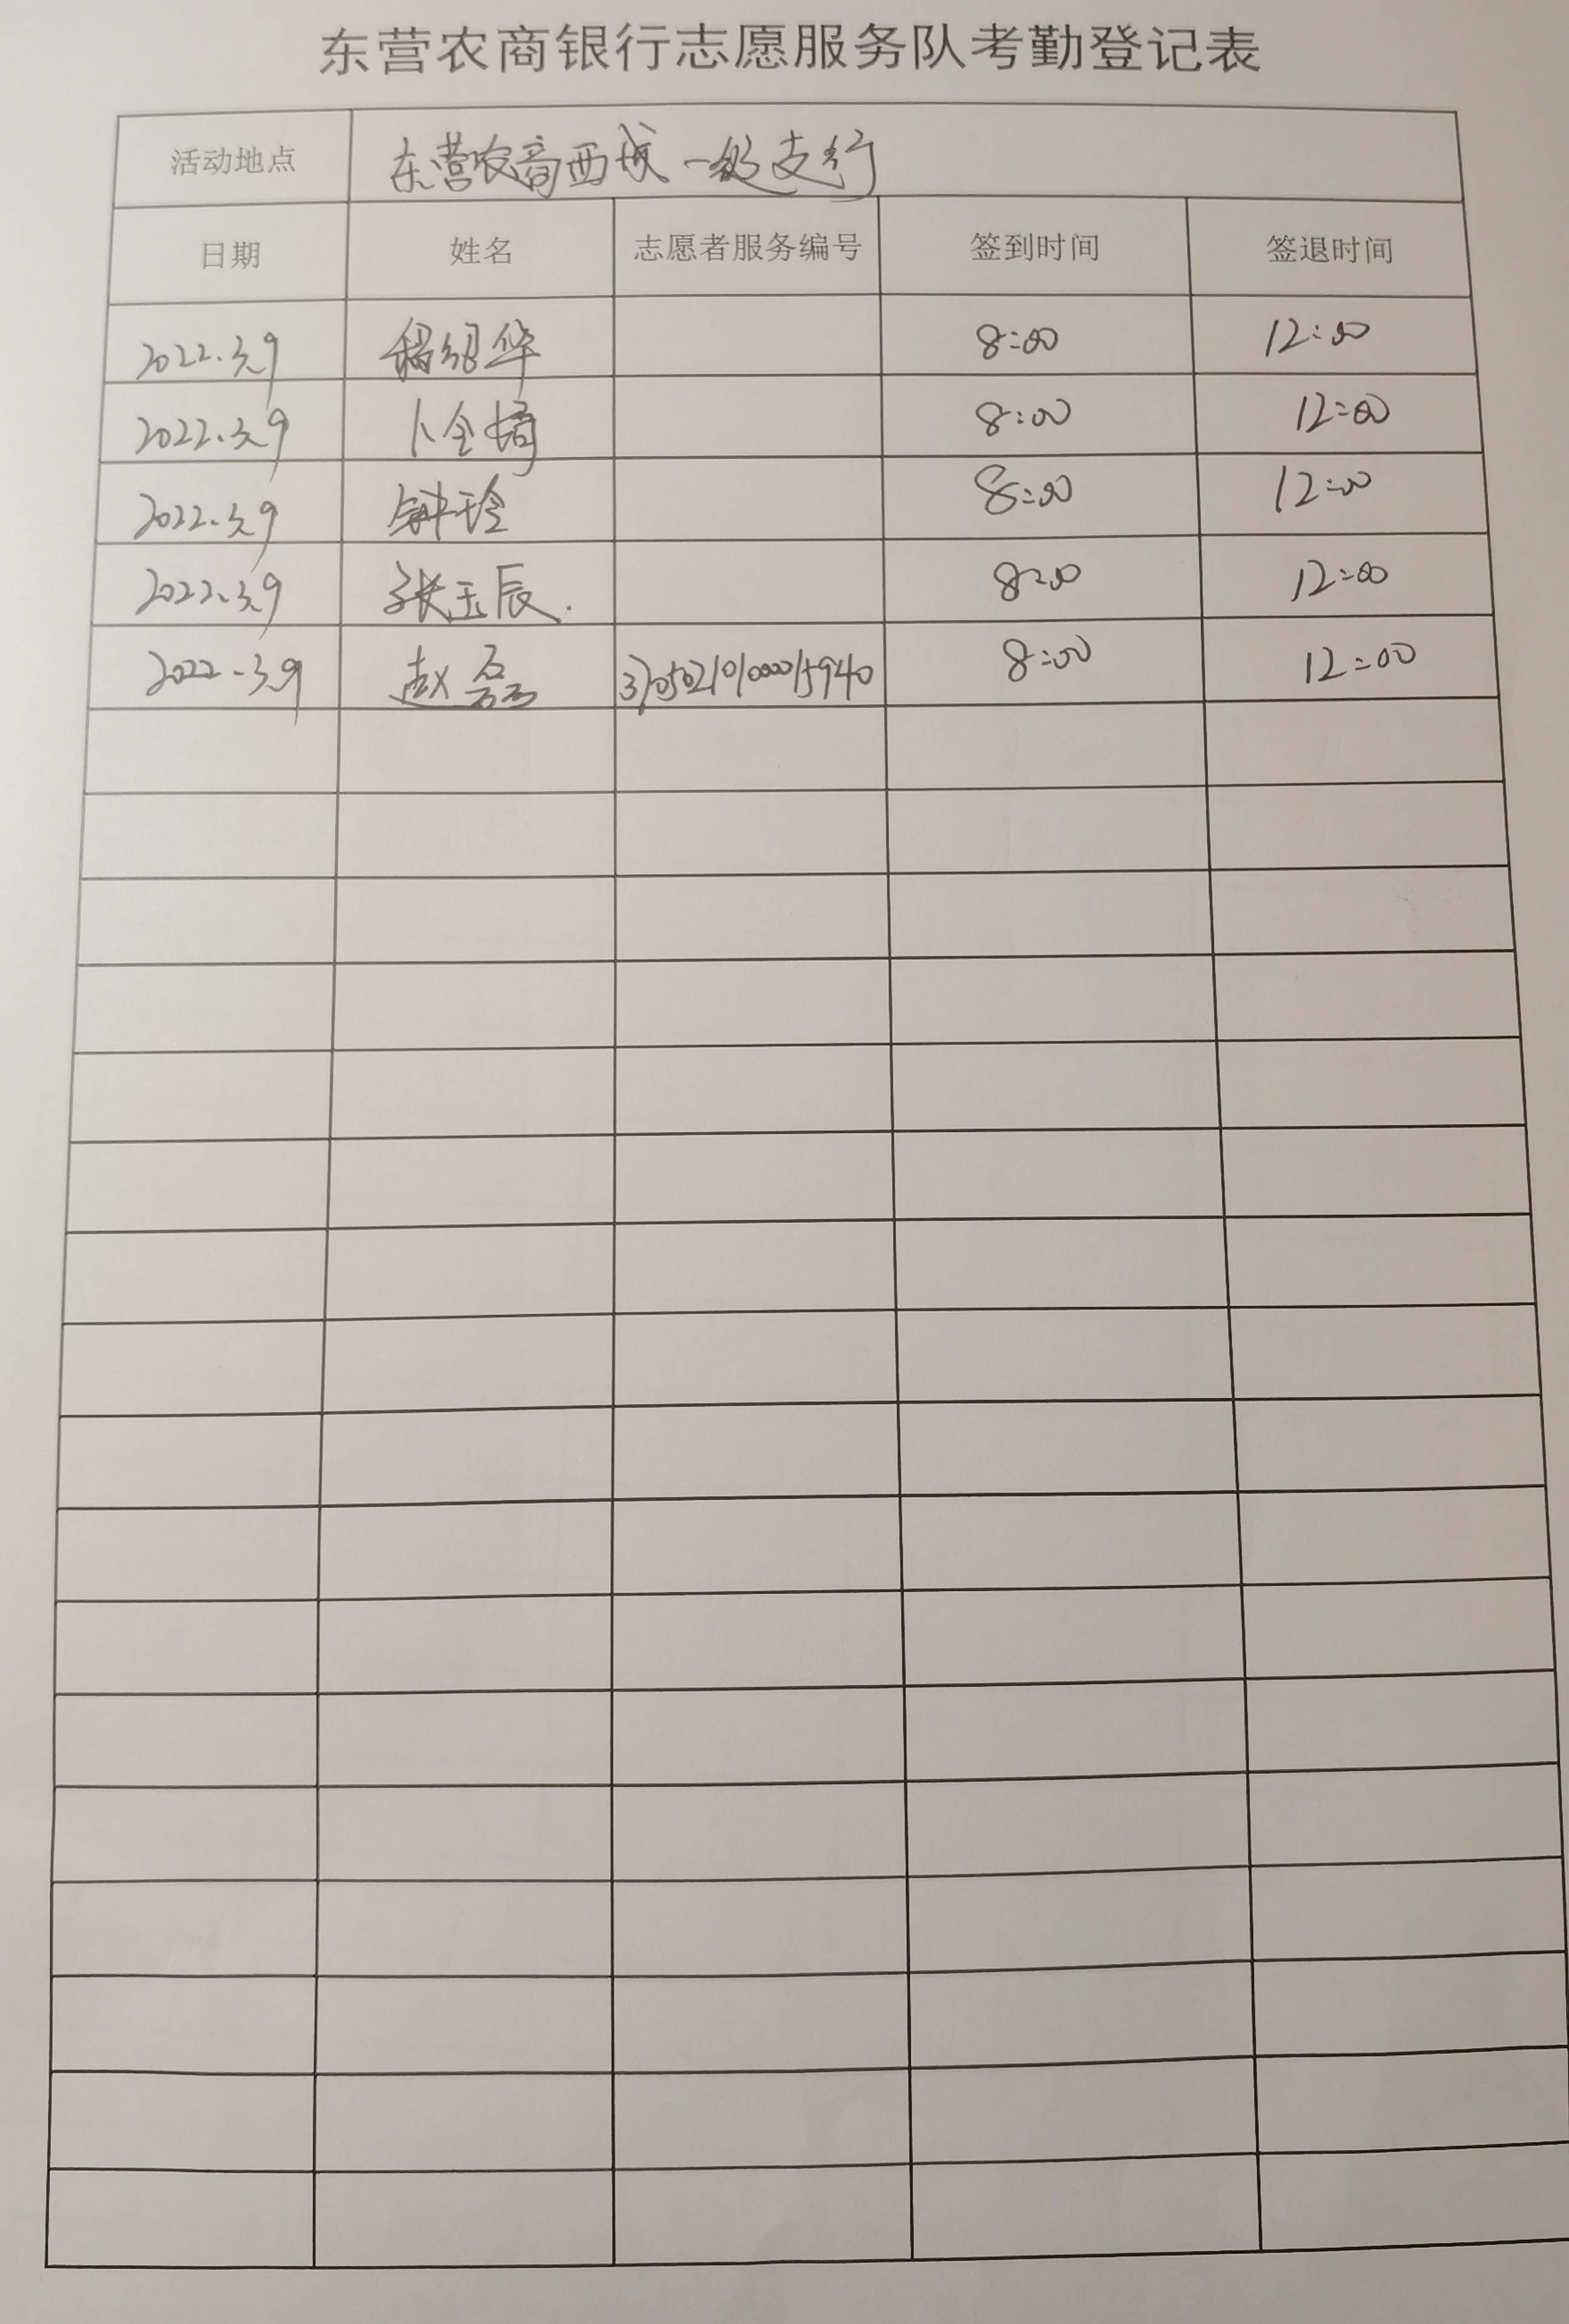 东营农商银行志愿服务队考勤登记表
活动地点 东营农商西城一级支行
日期 姓名 志愿者服务编号 签到时间 签退时间
2022.3.9 绍华 8:00 12:00
2022.3.9 卜全 8:00 12:00
2022.3.9 钟玲 8:00 12:00
2022.3.9 张玉辰. 8:00 12:00
2022.3.9 赵磊 8:00 12:00